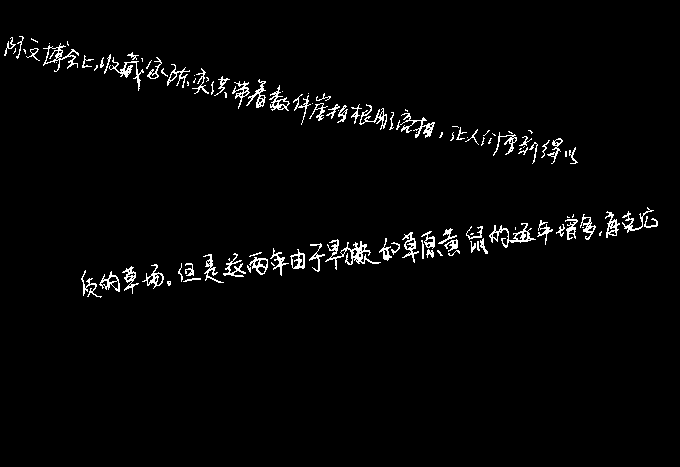 际文博会上,收藏家陈奕洪带着数件崖柏根雕亮相,让人们重新得以
质的草场。但是这两年由于旱獭和草原黄鼠的逐年增多,库克它